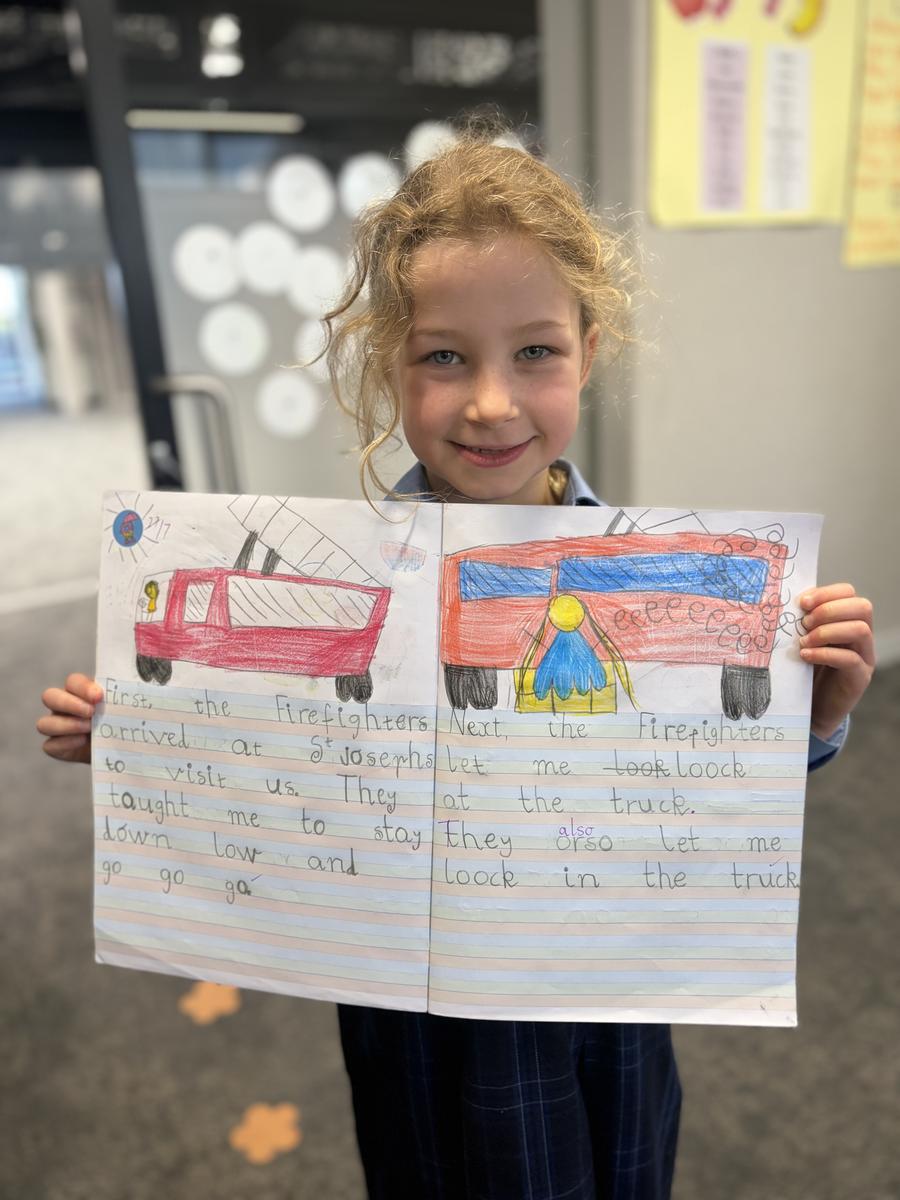 27/7
First, the Firefighters
arrived at St Josephs
to visit us. They
taught me to stay
down low and
go go go
Next, the Firefighters
let me look loock
at the truck.
also
They orso let me
loock in the truck.